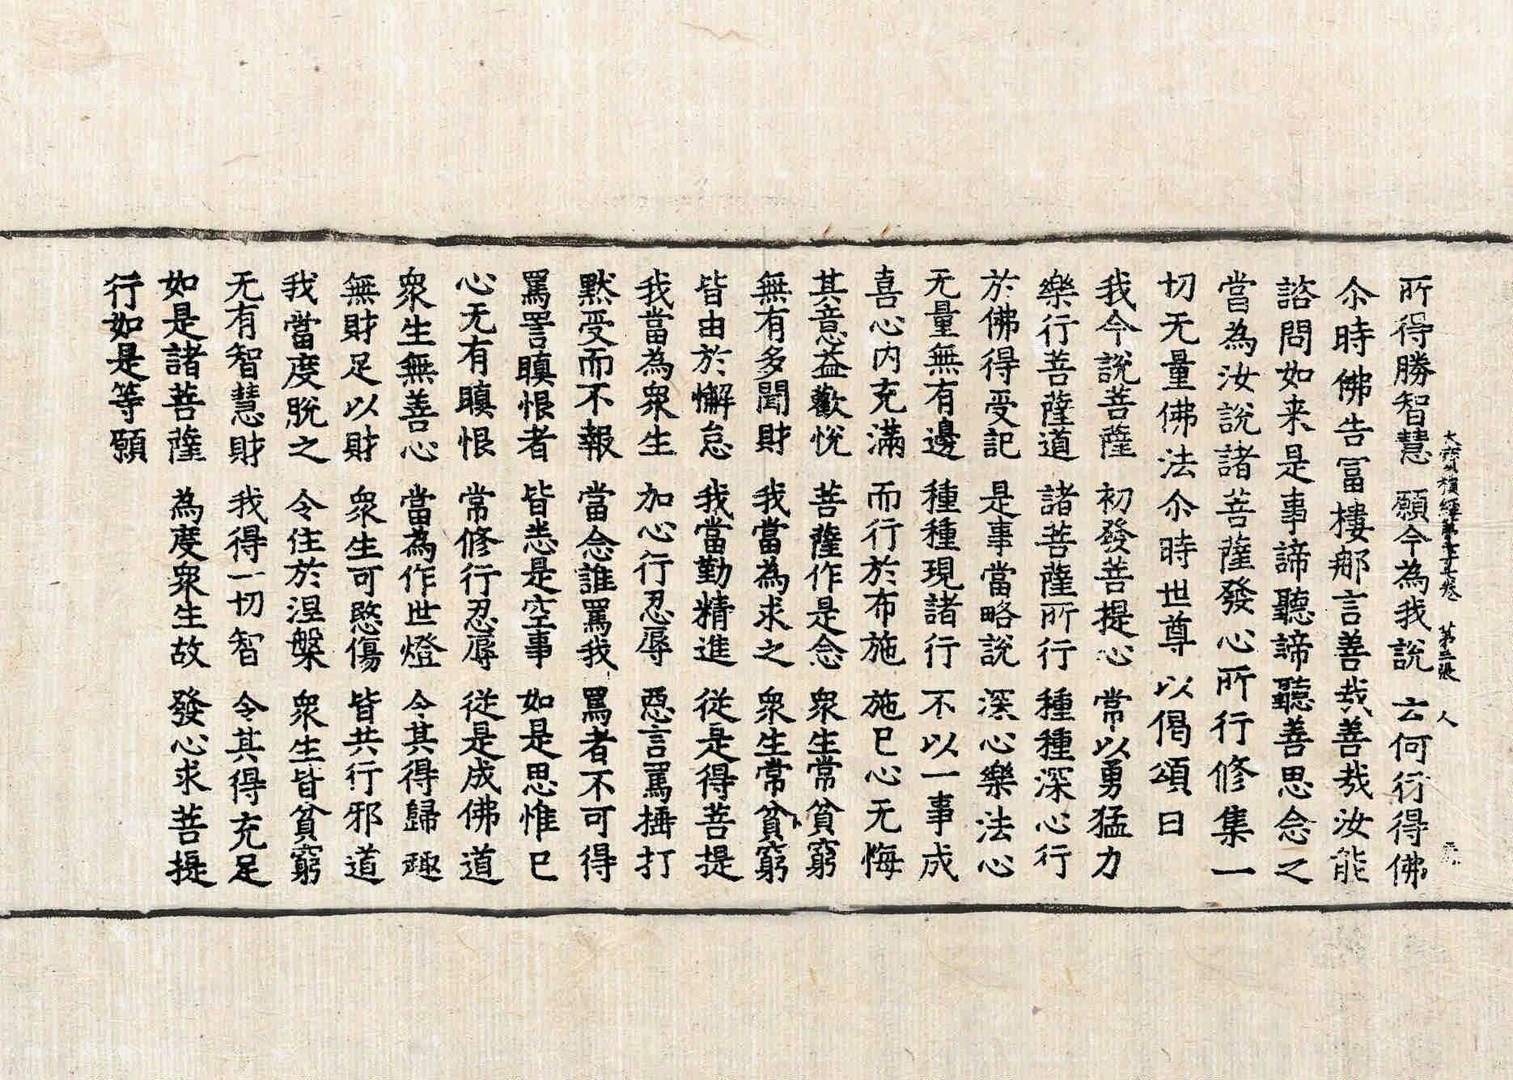 大寶積經第七十七卷　第三張　人
所得勝智慧　願今為我說　云何行得佛
尒時佛告冨樓那言善㢤善㢤汝能
諮問如来是事諦聽諦聽善思念之
當為汝說諸菩薩發心所行修集一
切无量佛法尒時世尊以偈頌曰
我今說菩薩　初發菩提心　常以勇猛力
樂行菩薩道　諸菩薩所行　種種深心行
於佛得受記　是事當略說　深心樂法心
无量無有邊　種種現諸行　不以一事成
喜心内充滿　而行於布施　施已心无悔
其意益歡悅　菩薩作是念　衆生常貧窮
無有多聞財　我當為求之　衆生常貧窮
皆由於懈怠　我當勤精進　從是得菩提
我當為衆生　加心行忍辱　惡言罵捶打
黙受而不報　當念誰罵我　罵者不可得
罵詈瞋恨者　皆悉是空事　如是思惟已
心无有瞋恨　常修行忍辱　從是成佛道
衆生無善心　當為作世燈　令其得歸趣
無財足以財　衆生可愍傷　皆共行邪道
我當度脫之　令住於涅槃　衆生皆貧窮
无有智慧財　我得一切智　令其得充足
如是諸菩薩　為度衆生故　發心求菩提
行如是等願